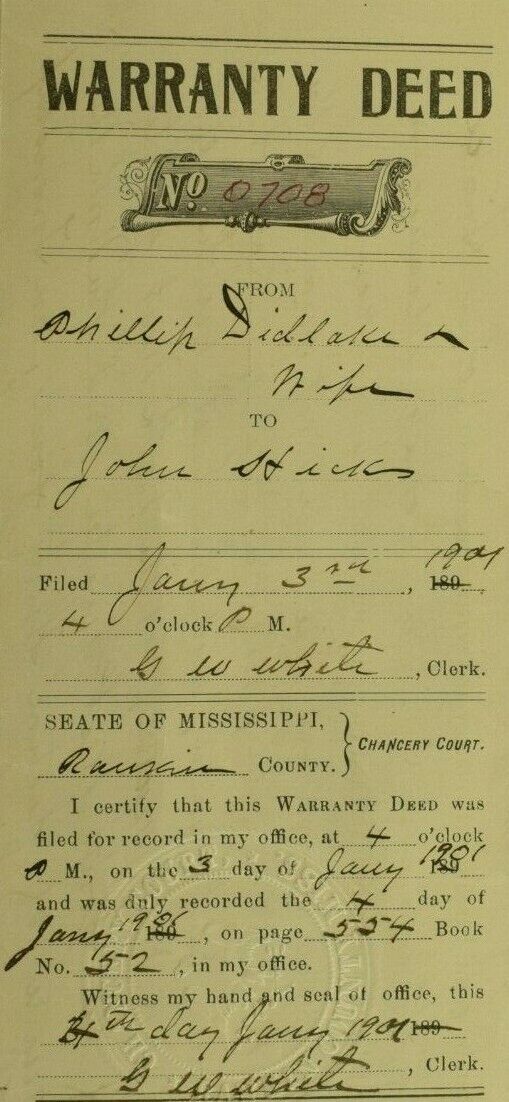 WARRANTY DEED
No. 0708
FROM
Phillip Didlake &
Wife
TO
John Hicks
Filed Jany 3rd, 189 1901
4 o'clock P M.
G W White, Clerk.
SEATE OF MISSISSIPPI,
Rankin COUNTY. } CHANCERY COURT.
I certify that this WARRANTY DEED was
filed for record in my office, at 4 o'clock
P M., on the 3 day of Jany 189 1901
and was duly recorded the 4 day of
Jany 189 1901, on page 554 Book
No. 52, in my office.
Witness my hand and seal of office, this
4th day Jany 1901 189
G W White, Clerk.